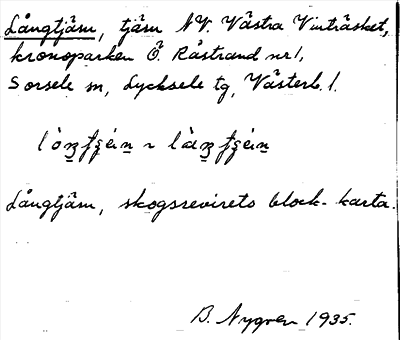 Långtjärn, tjärn NV. Västra Vinträsket,
kronoparken Ö. Råstrand nr 1,
Sorsele sn, Lycksele tg, Västerb. l.
Långtjärn, skogsrevirets block-karta.
B. Nygren 1935.